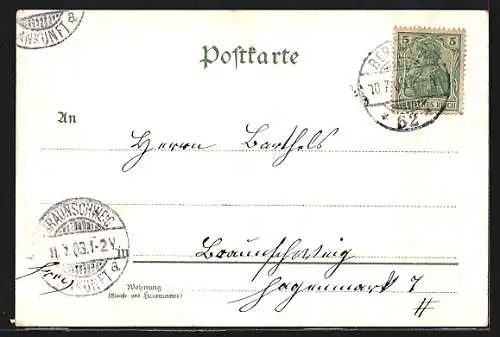 ANKUNFT a.
Postkarte
5 5
BER
10.7.
DEUTSCHES REICH
* 62 *
An
Herrn Barthels
BRAUNSCHWEIG
11.7.03.1-2V.
ANKUNFT a.
in Braunschweig
frei
Wohnung
(Straße und Hausnummer)
Hagenmarkt 7